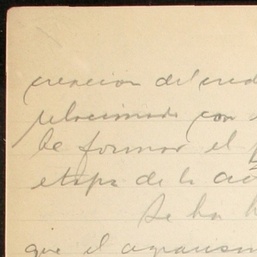 creacion del
relacionado con
be formar el
etapa de la
Se ha
que el agrarism